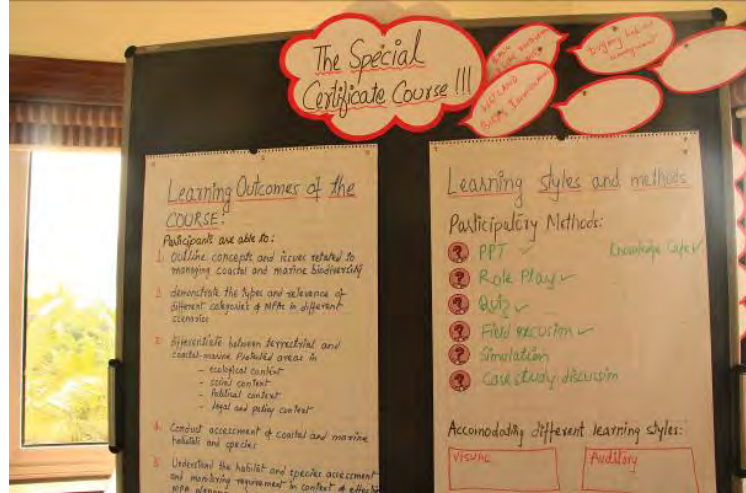 The Special
Certificate Course !!!
Learning Outcomes of the
COURSE:
Participants are able to:
1. Outline concepts and issues related to
managing coastal and marine biodiversity
2. demonstrate the types and relevance of
different categories of MPAs in different
scenarios
3. differentiate between terrestrial and
coastal-marine Protected areas in
- ecological context
- social context
- Political context
- legal and policy context
4. Conduct assessment of coastal and marine
habitats and species
5. Understand the habitat and species assessment
and monitoring requirement in context of effective
MPA
Learning styles and methods
Participatory Methods:
? PPT ✓
Knowledge Cafe ✓
? Role Play ✓
? Quiz ✓
? Field excusion ✓
? Simulation
? Case study discussion
Accomodating different learning styles:
VISUAL
Auditory